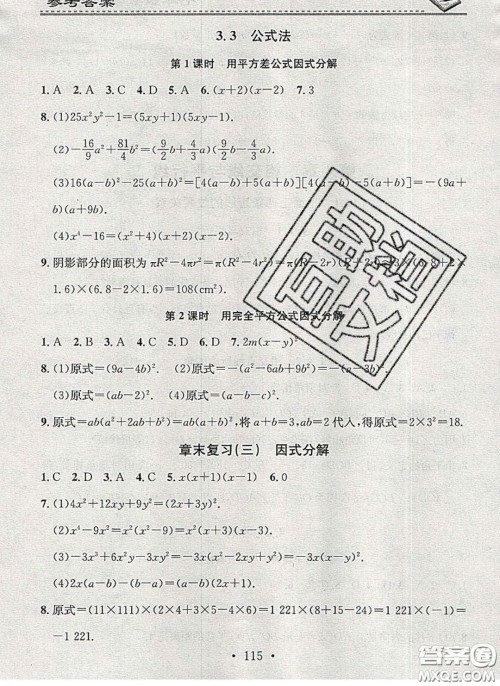 参考答案
3.3 公式法
第1课时 用平方差公式因式分解
1. A 2. A 3. C 4. D 5. A 6. (x+2)(x-2) 7. 3
8. (1)25x²y²-1=(5xy+1)(5xy-1).
(2)-16/9a²+81/4b²=(9/2b+4/3a)(9/2b-4/3a).
(3)16(a-b)²-25(a+b)²=[4(a-b)+5(a+b)][4(a-b)-5(a+b)]=-(9a+
b)(a+9b).
(4)x⁴-16=(x²+4)(x+2)(x-2).
9. 阴影部分的面积为πR²-4πr²=π(R²-4r²)=π(R-2r)(R+2r)≈3×(6.8+2×
1.6)×(6.8-2×1.6)=108(cm²).
第2课时 用完全平方公式因式分解
1. A 2. B 3. C 4. D 5. D 6. D 7. 2m(x-y)²
8. (1)原式=(9a-4b)². (2)原式=-(a²-6ab+9b²)=-(a-3b)².
(3)原式=(ab-2)². (4)原式=(a-b-c)².
9. 原式=ab(a²+2ab+b²)=ab(a+b)²,将a+b=3,ab=2代入,得原式=2×3²=18.
章末复习(三) 因式分解
1. C 2. D 3. A 4. C 5. x(x+1)(x-1) 6. 0
7. (1)4x²+12xy+9y²=(2x+3y)².
(2)x⁴-9x²=x²(x²-9)=x²(x+3)(x-3).
(3)-3x³+6x²y-3xy²=-3x(x²-2xy+y²)=-3x(x-y)².
(4)2x(a-b)-(b-a)=(a-b)(2x+1).
9. 原式=(11×111)×(2×4+3×5-4×6)=1 221×(8+15-24)=1 221×(-1)=
-1 221.
· 115 ·
互助文档
答案圈
MXQE.COM